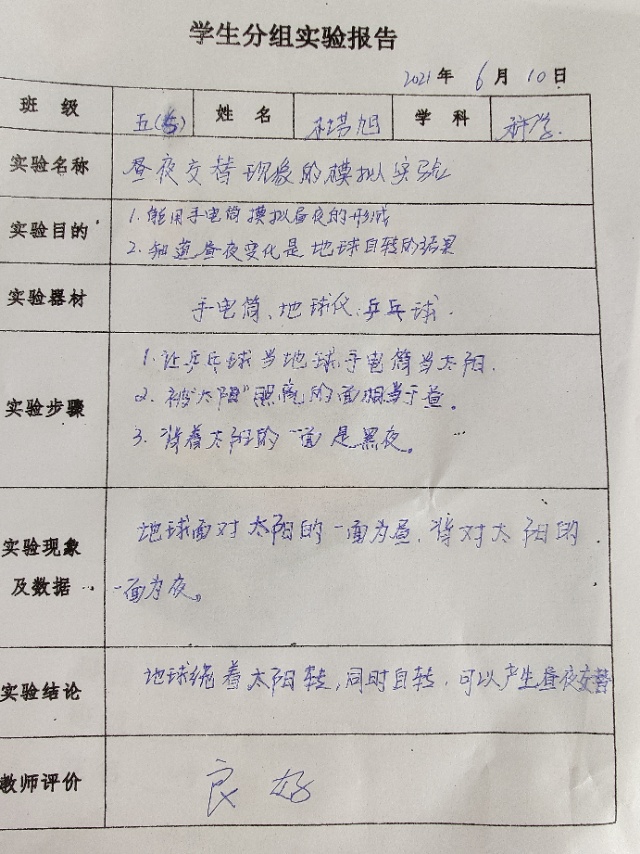 学生分组实验报告
2021年 6月 10日
班级 五(5) 姓名 旭 学科 科学
实验名称 昼夜交替现象的模拟实验
实验目的 1.能用手电筒模拟昼夜的形成
2.知道昼夜变化是地球自转的结果
实验器材 手电筒、地球仪、乒乓球.
实验步骤 1.让乒乓球当地球,手电筒当太阳.
2.被"太阳"照亮的面相当于昼。
3.背着太阳的一面是黑夜。
实验现象及数据 地球面对太阳的一面为昼,背对太阳的
一面为夜。
实验结论 地球绕着太阳转,同时自转,可以产生昼夜交替
教师评价 良好